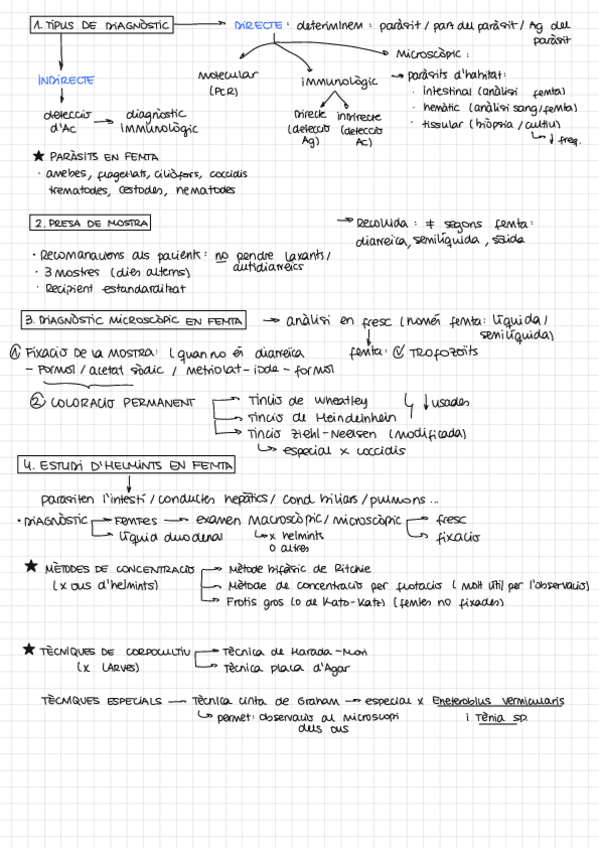 1. TIPUS DE DIAGNÒSTIC → DIRECTE: determinem: paràsit / part del paràsit / Ag del paràsit
INDIRECTE
↓
detecció d'Ac → diagnòstic immunològic
Molecular (PCR)
immunològic
Directe (detecció Ag)
indirecte (detecció Ac)
Microscòpic:
→ paràsits d'habitat:
· intestinal (anàlisi femta)
· hemàtic (anàlisi sang/femta)
· tissular (biòpsia / cultiu)
↳ ↓ freq.
★ PARÀSITS EN FEMTA
· amebes, flagel·lats, ciliòfors, coccidis
trematodes, cestodes, nematodes
2. PRESA DE MOSTRA
→ Recollida: ≠ segons femta:
diarreica, semilíquida, sòlida
· Recomanacions als pacients: no pendre laxants/
antidiarreics
· 3 mostres (dies alterns)
· Recipient estandarditzat
3. DIAGNÒSTIC MICROSCÒPIC EN FEMTA → anàlisi en fresc (només femta: líquida/
semilíquida)
① FIXACIÓ DE LA MOSTRA: (quan no és diarreica
femta: TROFOZOÏTS
- Formol / acetat sòdic / metriolat - iode - formol
② COLORACIÓ PERMANENT
Tinció de Wheatley
Tinció de Heindeinhein
↓ usades
Tinció Ziehl-Neelsen (modificada)
↳ especial x coccidis
4. ESTUDI D'HELMINTS EN FEMTA
↓
parasiten l'intestí / conductes hepàtics / cond biliars / pulmons ...
· DIAGNÒSTIC
FEMTES → examen macroscòpic / microscòpic
fresc
líquid duodenal
↳ x helmints
o altres
fixació
★ MÈTODES DE CONCENTRACIÓ
(x ous d'helmints)
Mètode bifàsic de Ritchie
Mètode de concentració per flotació (molt útil per l'observació)
Frotis gros (o de Kato-Katz) (femtes no fixades)
★ TÈCNIQUES DE CORPOCULTIU
(x LARVES)
Tècnica de Harada-Mori
Tècnica placa d'Agar
TÈCNIQUES ESPECIALS — Tècnica cinta de Graham → especial x Eneterobius vermicularis
↳ permet: observació al microscopi
i Tènia sp.
dels ous